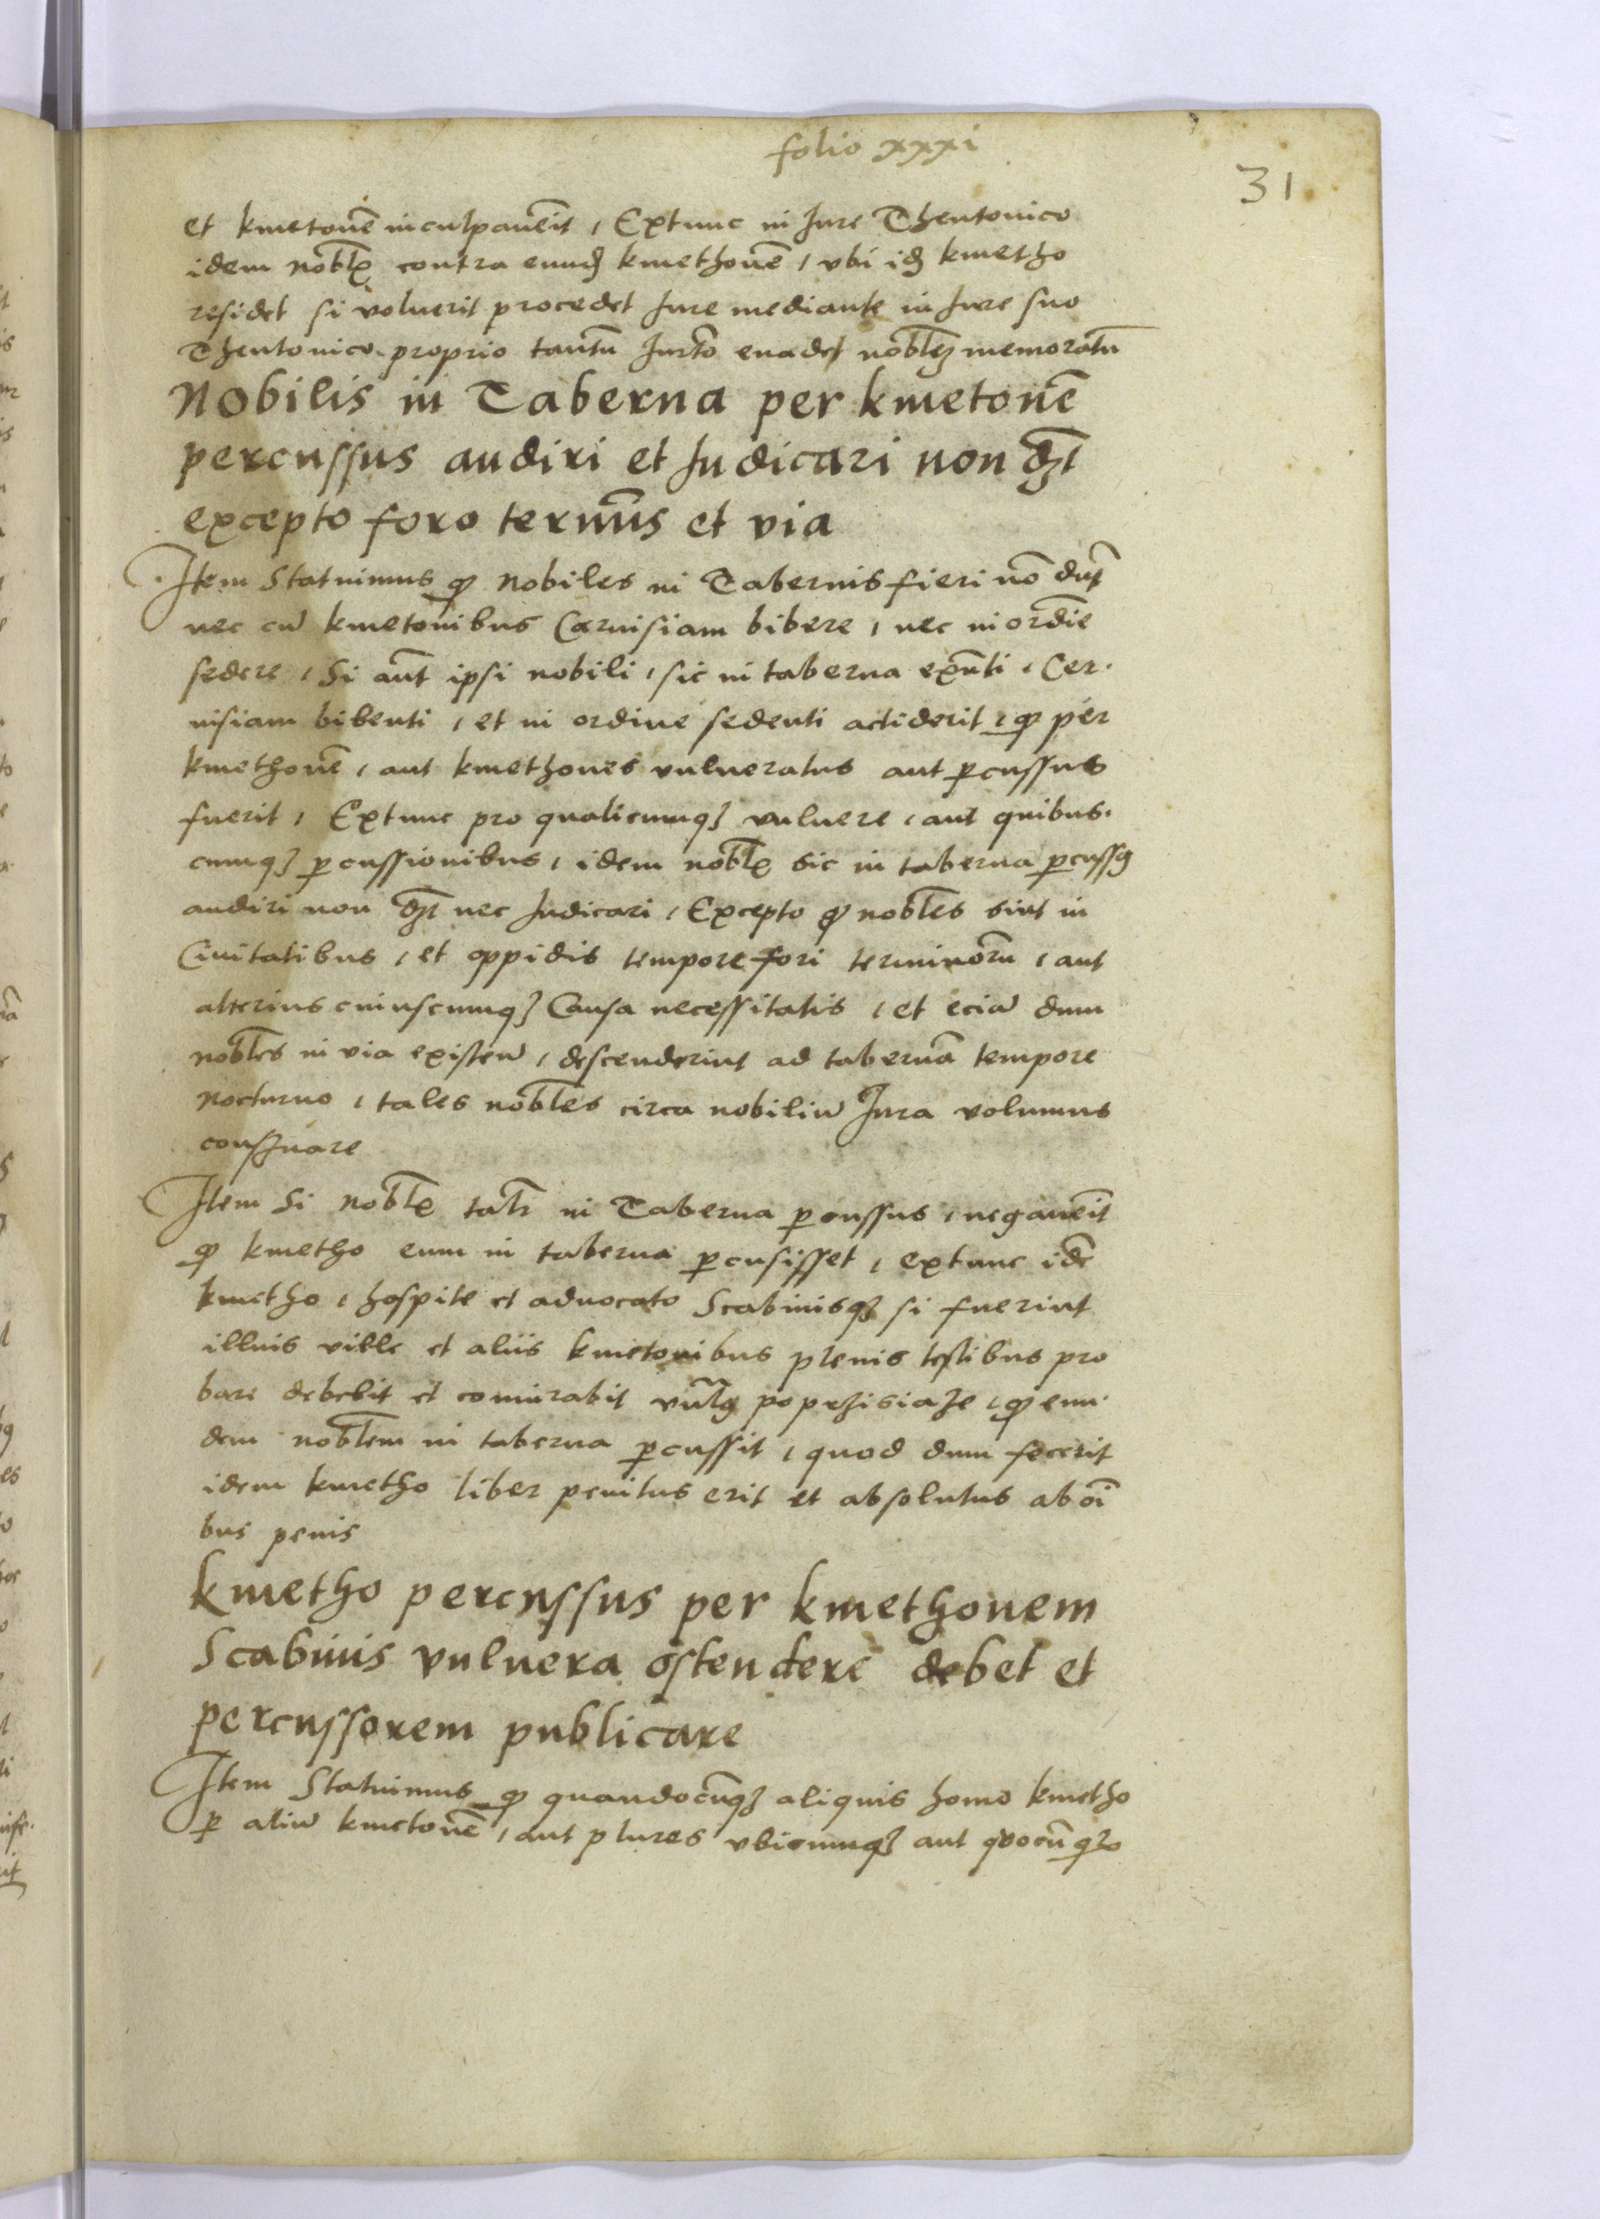 folio xxxi
31
et kmetonē inculpauerit, Extunc in Jure Thentonico
idem nobĺ contra eund kmethonē, vbi id kmetho
residet si voluerit procedet Jure mediante in Jure suo
Thentonico proprio tantū euadet memoratū
Nobilis in Taberna per kmetonē
percussus audiri et Judicari non dʒt
excepto foro termīs et via
Item Statuimus qꝫ Nobiles in Tabernis fieri nō dnt
nec cū kmetonibus Ceruisiam bibere, nec in ordīe
sedere, Si aūt ipsi nobili, sic in taberna exn̄ti, Cer
uisiam bibenti, et in ordine sedenti acciderit, qꝫ per
kmethonē, aut kmethones vulneratus aut ꝑcussus
fuerit, Extunc pro qualicumqꝫ vulnere, aut quibus
cumqꝫ ꝑcussionibus, idem nobĺ sic in taberna ꝑcussꝰ
audiri non dʒt nec Judicari, Excepto qꝫ nobĺes sint in
Ciuitatibus, et oppidis tempore fori terminorū, aut
alterius cuiuscumqꝫ Causa necessitatis, et eciā dum
nobĺes in via existen̄, descenderint ad tabernā tempore
nocturno, tales nobĺes circa nobiliū Jura volumus
conſꝫuare
Item Si nobĺ talr in Taberna ꝑcussus, negauerit
qꝫ kmetho eum in taberna ꝑcusisset, extunc idē
kmetho, hospite et aduocato Scabinisqꝫ si fuerint
illius ville et aliis kmetonibus plenis testibus pro
bare debebit et comiurabit qꝫ eun
dem nobĺem in taberna ꝑcussit, quod dum fecerit
idem kmetho liber penitus erit et absolutus ab oī
bus penis
kmetho percussus per kmethonem
Scabinis vulnera ostendere debet et
percussorem publicare
Item Statuimus qꝫ quandocūqꝫ aliquis homo kmetho
ꝑ aliū kmetonē, aut plures vbicumqꝫ aut quocūqꝫ